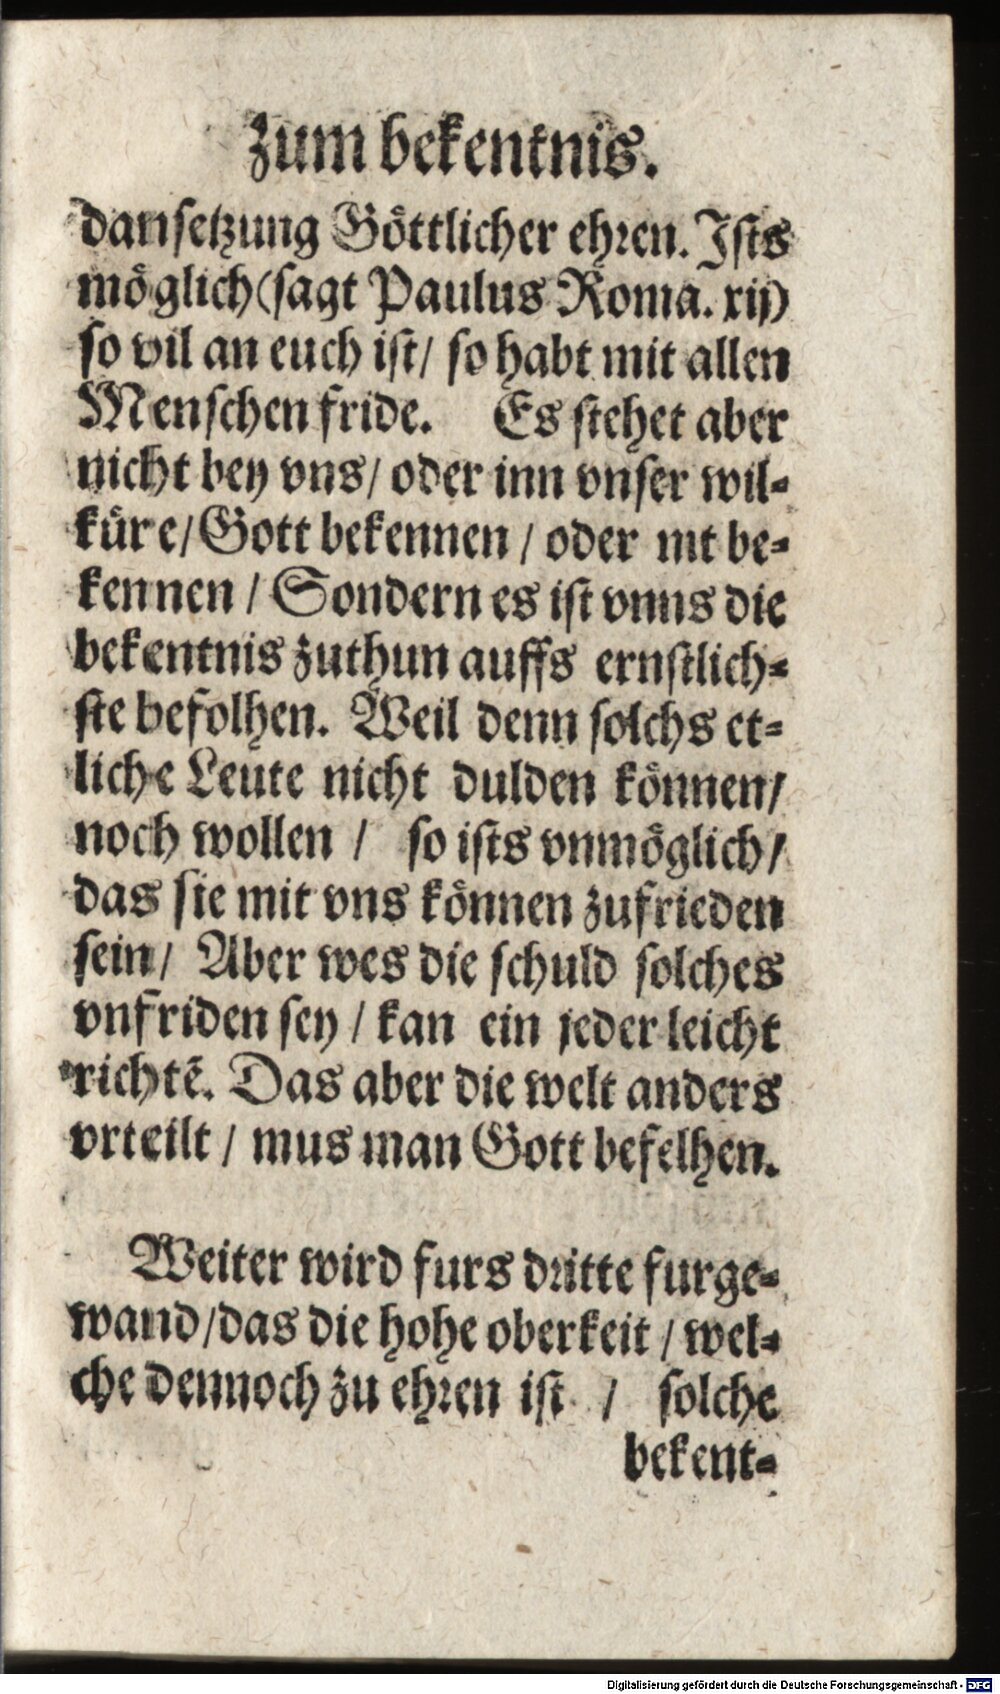 Zum bekentnis.
dansetzung Göttlicher ehren. Ists
möglich (sagt Paulus Roma. xij)
so vil an euch ist / so habt mit allen
Menschen fride. Es stehet aber
nicht bey vns / oder inn vnser wil-
küre / Gott bekennen / oder nit be-
kennen / Sondern es ist vnns die
bekentnis zuthun auffs ernstlich-
ste befolhen. Weil denn solchs et-
liche Leute nicht dulden können /
noch wollen / so ists vnmöglich /
das sie mit vns können zufrieden
sein / Aber wes die schuld solches
vnfriden sey / kan ein jeder leicht
richtẽ. Das aber die welt anders
vrteilt / mus man Gott befelhen.
Weiter wird furs dritte furge-
wand / das die hohe oberkeit / wel-
che dennoch zu ehren ist / solche
bekent-
Digitalisierung gefördert durch die Deutsche Forschungsgemeinschaft - DFG